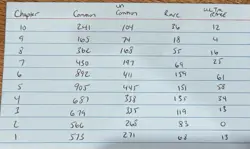 Chapter Common un Common Rare ULTRA RARE
10 241 104 36 12
9 165 74 18 4
8 366 168 55 16
7 430 197 64 25
6 892 411 159 61
5 905 445 151 58
4 657 338 135 39
3 679 325 119 13
2 566 268 83 0
1 575 271 68 13